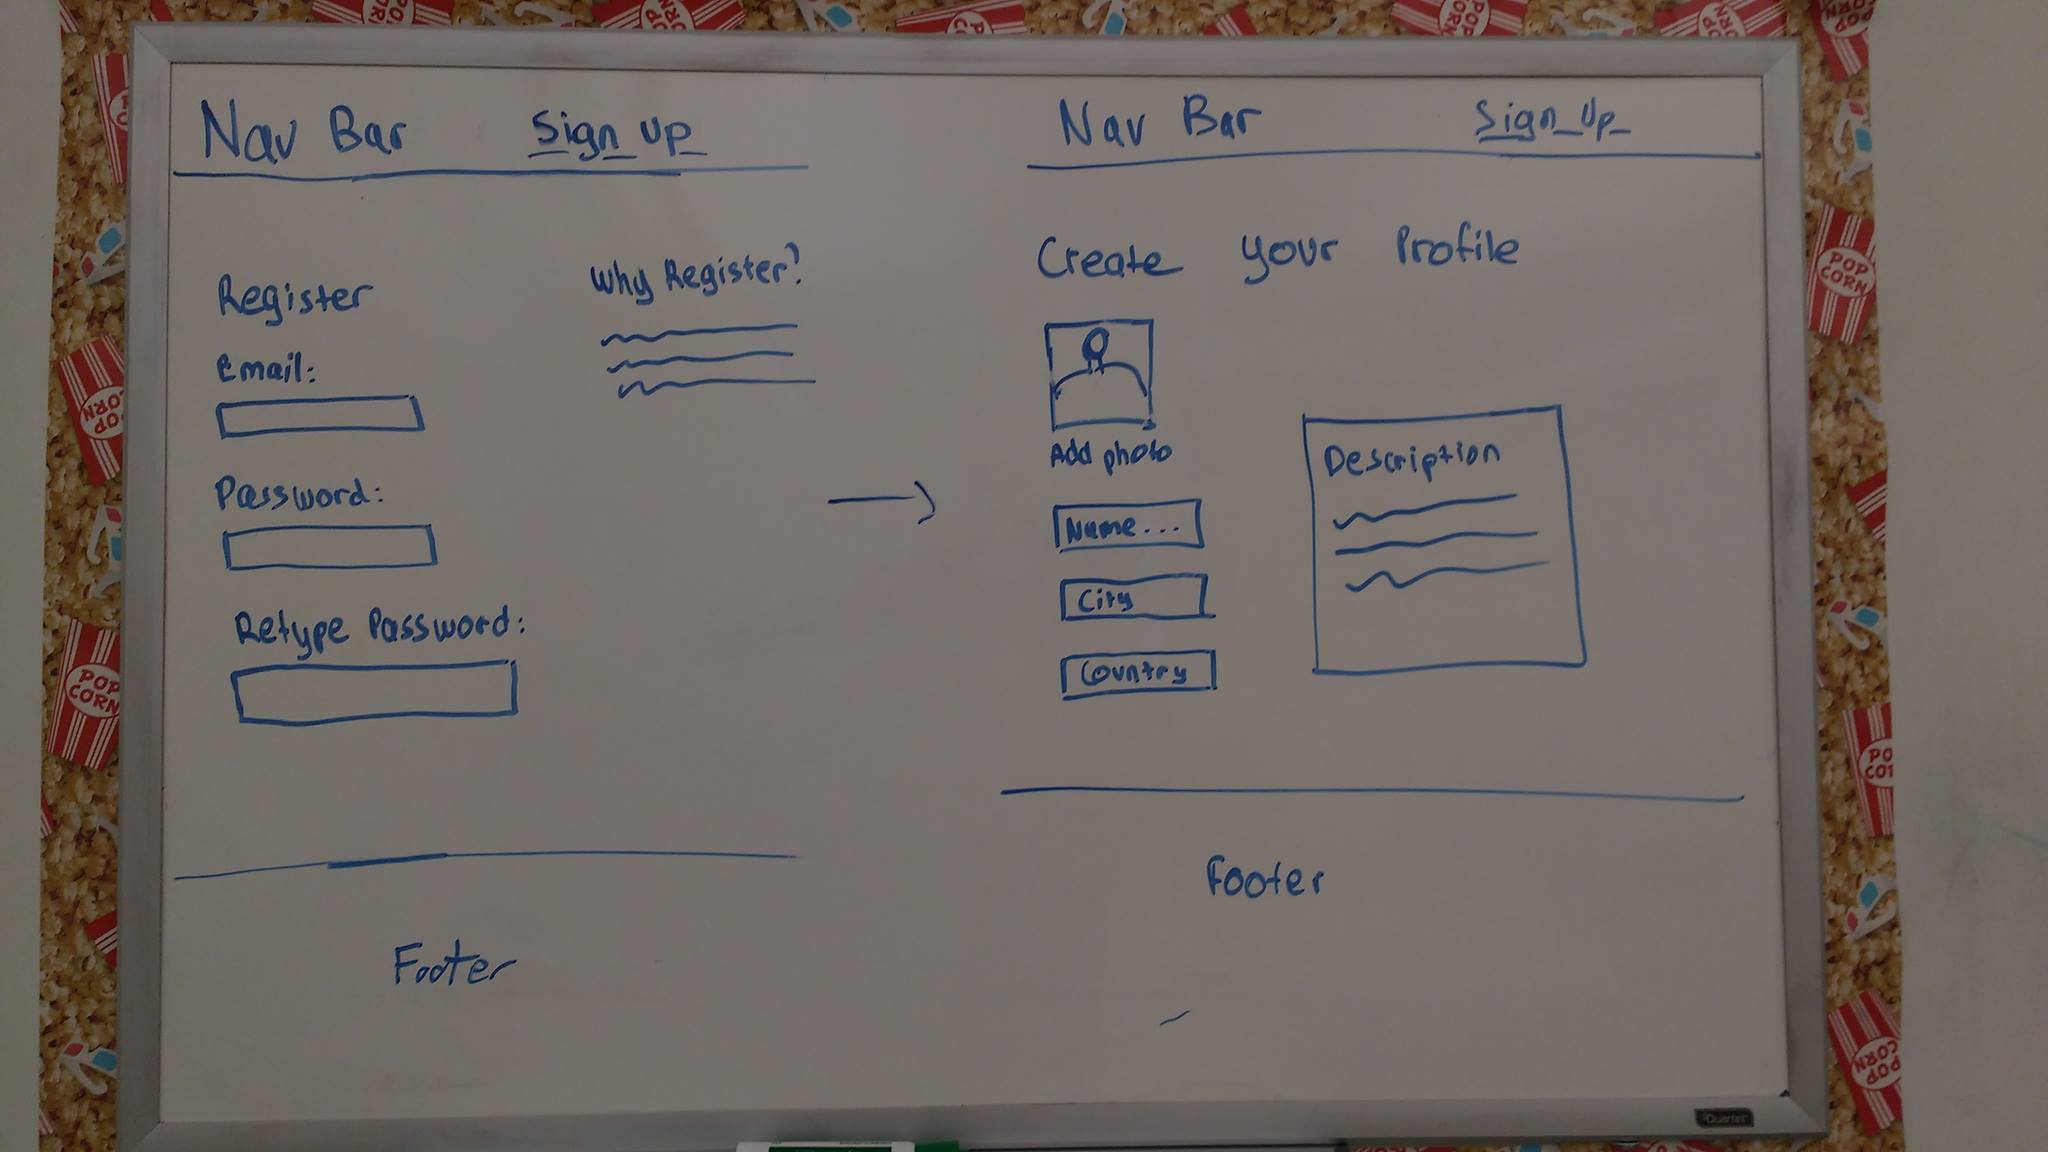 Nav Bar Sign Up
Register
Email:
Password:
Retype Password:
Why Register?
Footer
Nav Bar Sign Up
Create your Profile
Add photo
Name...
City
Country
Description
Footer
Quartet
POP CORN
POP CORN
POP CORN
POP CORN
POP CORN